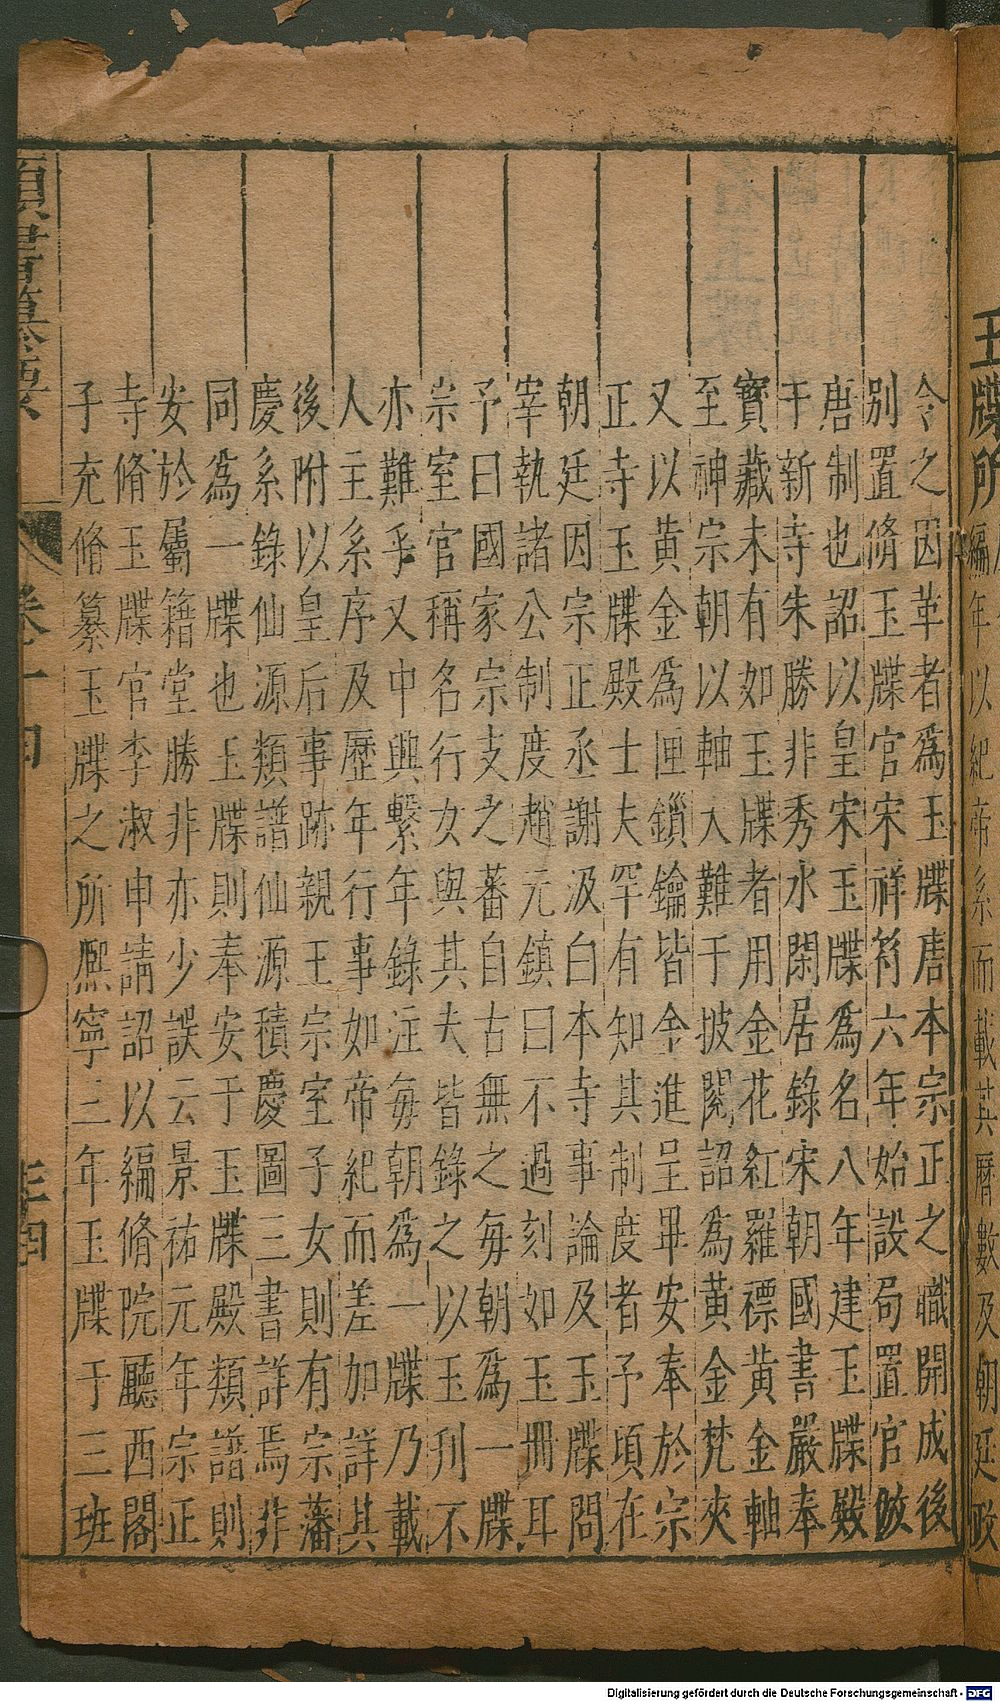 玉牒所
編年以紀帝系而載其曆數及朝廷政
令之因革者爲玉牒唐本宗正之職開成後
別置脩玉牒官宋祥符六年始設局置官倣
唐制也詔以皇宋玉牒爲名八年建玉牒殿
于新寺朱勝非秀水閑居錄宋朝國書嚴奉
寶藏未有如玉牒者用金花紅羅褾黃金軸
至神宗朝以軸大難于披閱詔爲黃金梵夾
又以黃金爲匣鎖鑰皆金進呈畢安奉於宗
正寺玉牒殿士夫罕有知其制度者予頃在
朝廷因宗正丞謝汲白本寺事論及玉牒問
宰執諸公制度趙元鎮曰不過刻如玉冊耳
予曰國家宗支之蕃自古無之每朝爲一牒
崇室官稱名行女與其夫皆錄之以玉刋不
亦難乎又中興繫年錄注每朝爲一牒乃載
人主系序及歷年行事如帝紀而差加詳其
後附以皇后事跡親王宗室子女則有宗藩
慶系錄仙源類譜仙源積慶圖三書詳焉非
同爲一牒也玉牒則奉安于玉牒殿類譜則
安於屬籍堂勝非亦少誤云景祐元年宗正
寺脩玉牒官李淑申請詔以編脩院廳西閣
子充脩纂玉牒之所熈寧三年玉牒于三班
類書纂要
卷十四
Digitalisierung gefördert durch die Deutsche Forschungsgemeinschaft - DFG